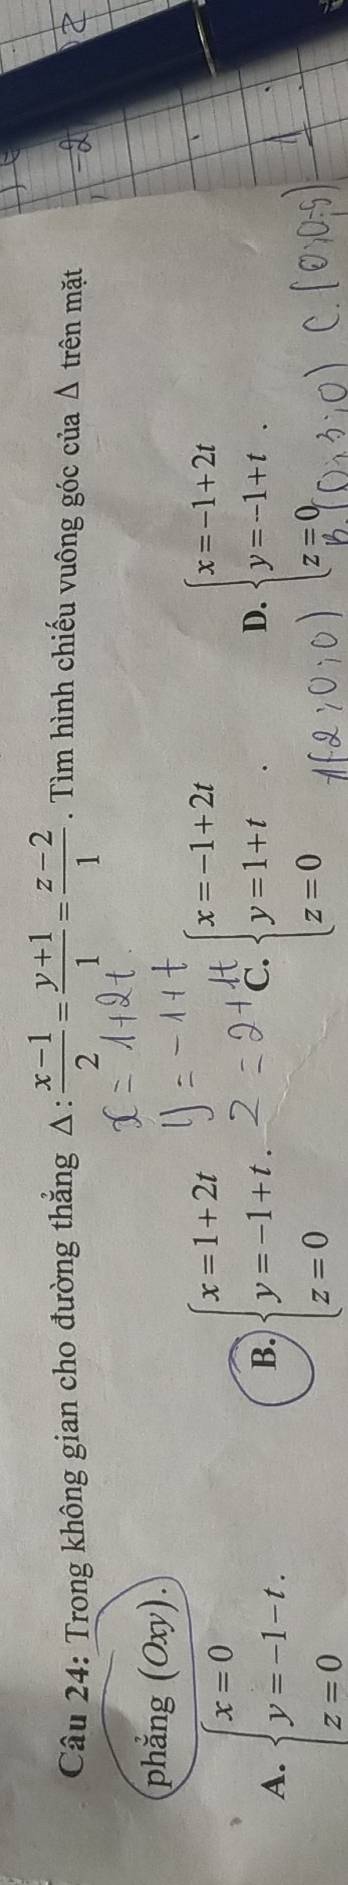 Câu 24: Trong không gian cho đường thẳng Δ: \frac{x-1}{2} = \frac{y+1}{1} = \frac{z-2}{1}. Tìm hình chiếu vuông góc của Δ trên mặt
phẳng (Oxy).
x = 1+2t
y = -1+t
2 = 2+1t
A. { x = 0
y = -1-t.
z = 0
B. { x = 1+2t
y = -1+t.
z = 0
C. { x = -1+2t
y = 1+t.
z = 0
D. { x = -1+2t
y = -1+t.
z = 0
A(2;0;0) B.(0;3;0) C.(0;0;5)
-2
2